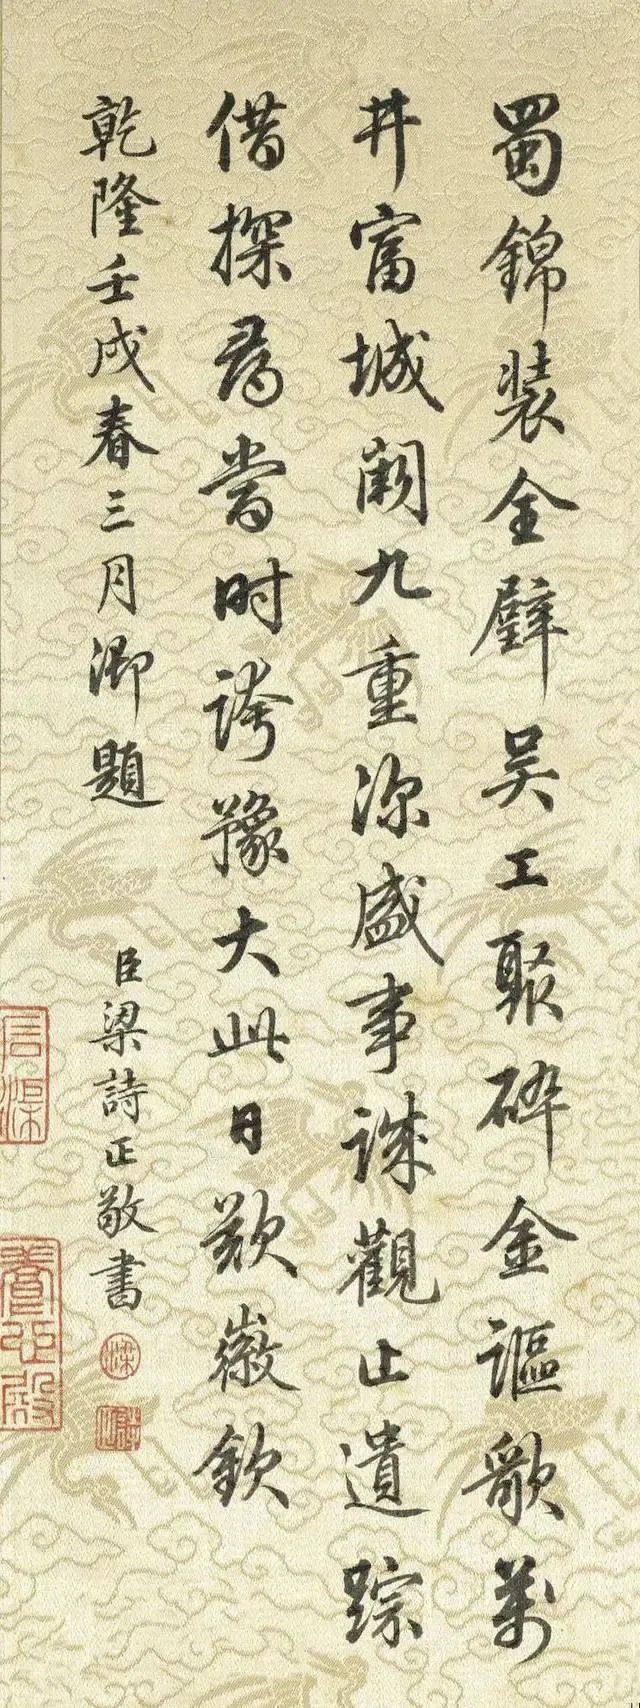 蜀錦装全璧吴工聚碎金謳歌萬
井富城闕九重深盛事誠觀止遺踪
借探尋當時誇豫大此日歎徽欽
乾隆壬戌春三月御題
臣梁詩正敬書